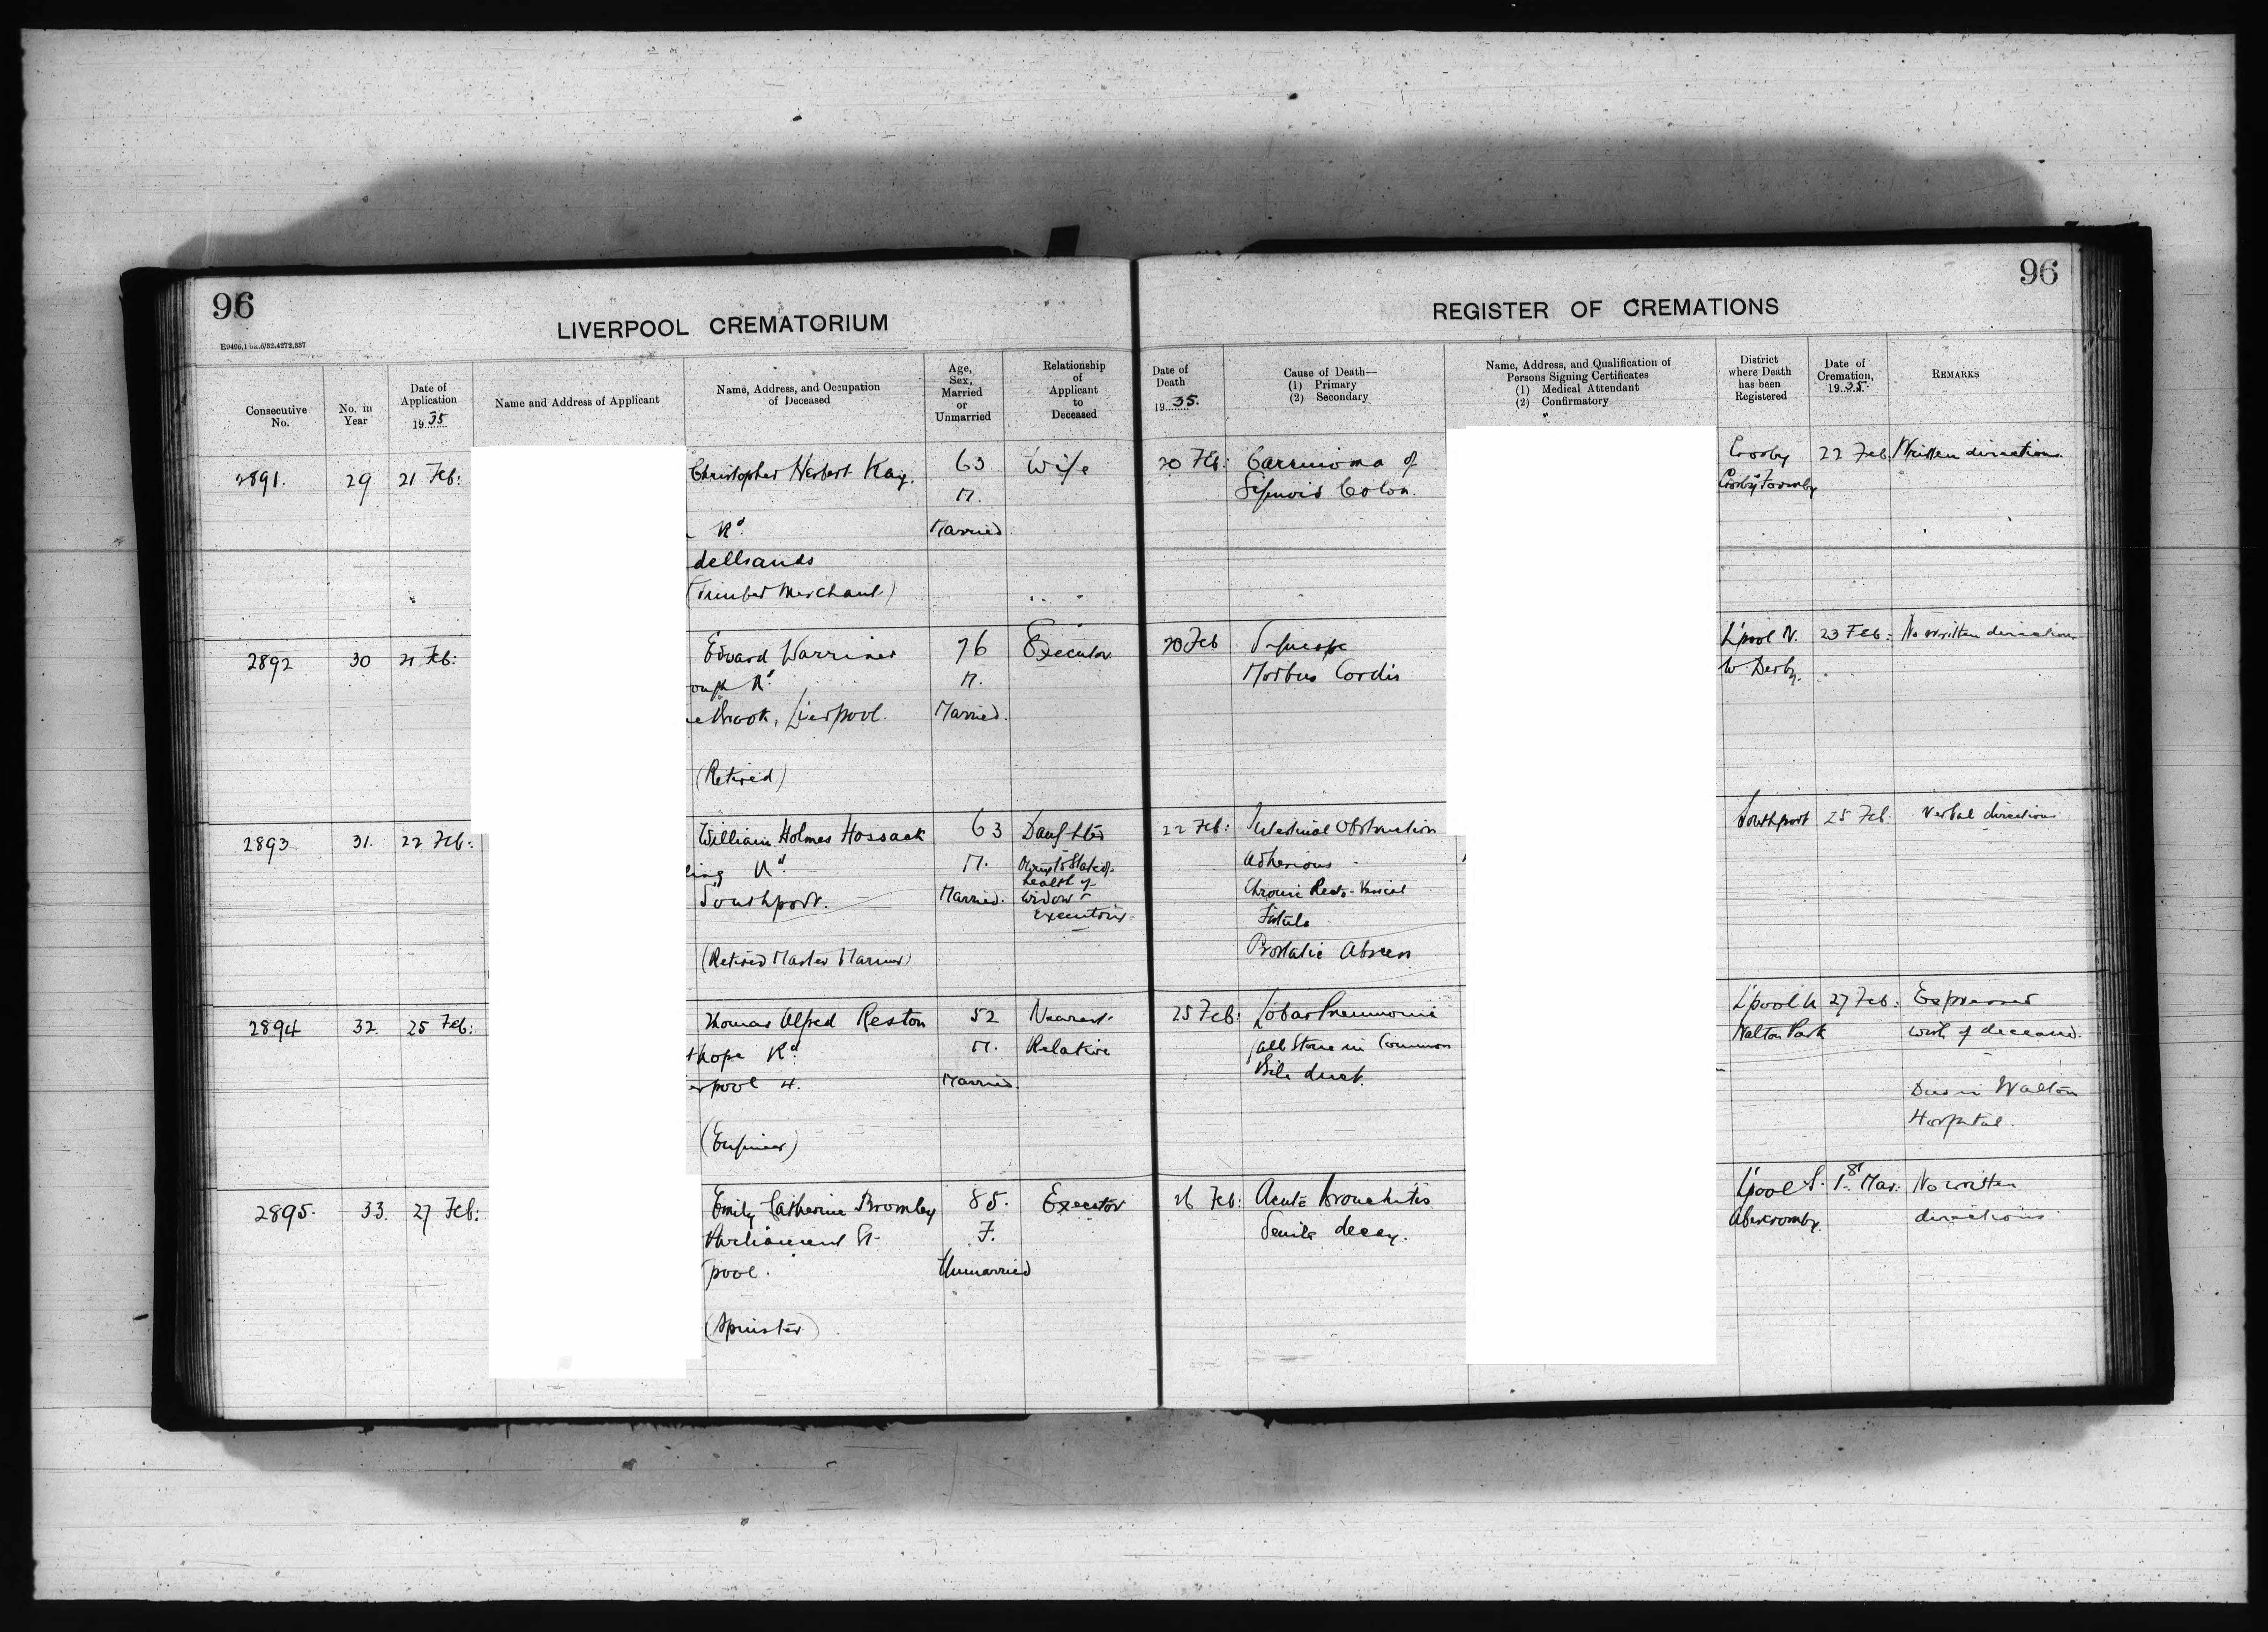 96
LIVERPOOL CREMATORIUM
Consecutive No.
No. in Year
Date of Application 1935
Name and Address of Applicant
Name, Address, and Occupation of Deceased
Age, Sex, Married or Unmarried
Relationship of Applicant to Deceased
96
REGISTER OF CREMATIONS
Date of Death 1935.
Cause of Death— (1) Primary (2) Secondary
Name, Address, and Qualification of Persons Signing Certificates (1) Medical Attendant (2) Confirmatory
District where Death has been Registered
Date of Cremation, 1935.
REMARKS
2891. 29 21 Feb: Christopher Herbert Kay. 63 Wife 20 Feb: Carcinoma of Crosby 22 Feb. Written directions
M. Sigmoid Colon. Crosby Formby
Rd. Married
dellsands
(Timber Merchant)
2892 30 21 Feb: Edward Warriner 76 Executor 20 Feb Syncope L'pool N. 23 Feb: No written directions
Rd. M. Morbus Cordis W. Derby.
Brook, Liverpool. Married.
(Retired)
2893 31. 22 Feb: William Holmes Hossack 63 Daughter 22 Feb: Intestinal Obstruction Southport 25 Feb. Verbal directions
ling Rd M. Owing to State of Adhesions
health of Chronic Recto-Vesical
Southport. Married. widow
executrix Fistula
(Retired Master Mariner) Prostatic Abscess
2894 32. 25 Feb: Thomas Alfred Reston 52 Nearest 25 Feb: Lobar Pneumonia L'pool N 27 Feb: Expressed
thope Rd. M. Relative Gall Stone in Common Walton Park wish of deceased.
pool 4. Married Bile duct.
Died in Walton
Hospital.
(Engineer)
2895. 33. 27 Feb: Emily Catherine Bromley 85. Executor 26 Feb: Acute Bronchitis L'pool S. 1st Mar: No written
Parliament St. F. Senile decay. Abercromby. directions
pool. Unmarried
(Spinster)